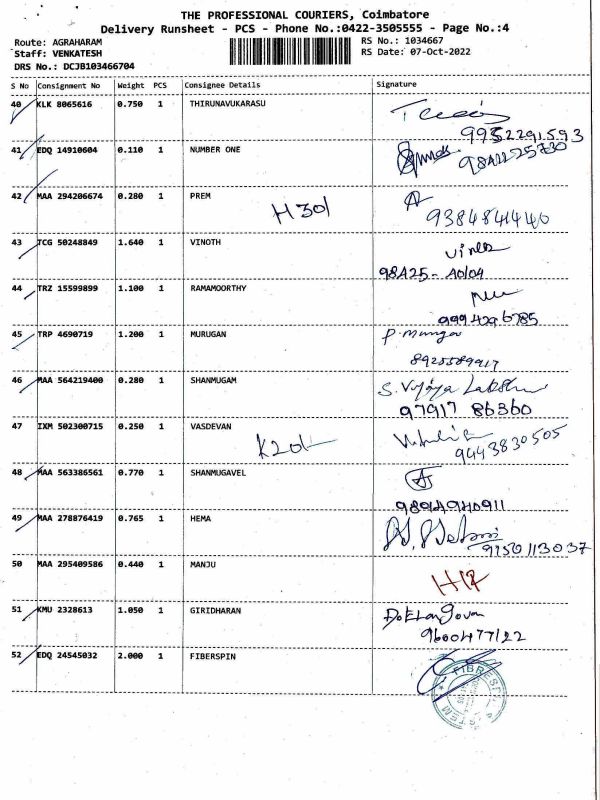 THE PROFESSIONAL COURIERS, Coimbatore
Delivery Runsheet - PCS - Phone No.:0422-3505555 - Page No.:4
Route: AGRAHARAM
Staff: VENKATESH
DRS No.: DCJB103466704
RS No.: 1034667
RS Date: 07-Oct-2022
S No Consignment No Weight PCS Consignee Details Signature
40 KLK 8065616 0.750 1 THIRUNAVUKARASU
9952291593
41 EDQ 14910604 0.110 1 NUMBER ONE
42 MAA 294206674 0.280 1 PREM
H301 9384841440
43 TCG 50248849 1.640 1 VINOTH
98425-
44 TRZ 15599899 1.100 1 RAMAMOORTHY
9994296785
45 TRP 4690719 1.200 1 MURUGAN
8925589917
46 MAA 564219400 0.280 1 SHANMUGAM S. Vijaya
97917 86360
47 IXM 502300715 0.250 1 VASDEVAN
K201 9443830505
48 MAA 563386561 0.770 1 SHANMUGAVEL
9894940911
49 MAA 278876419 0.765 1 HEMA
9750113037
50 MAA 295409586 0.440 1 MANJU
51 KMU 2328613 1.050 1 GIRIDHARAN
9600477122
52 EDQ 24545032 2.000 1 FIBERSPIN